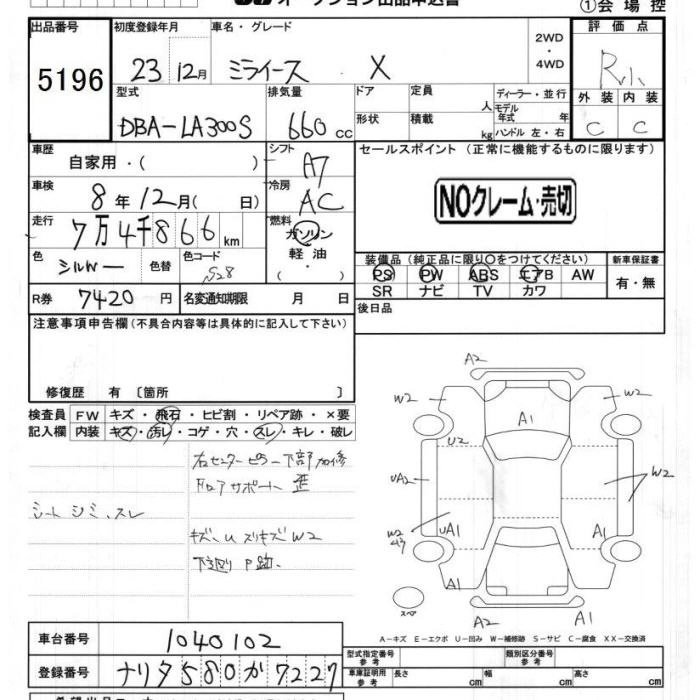 オークション出品申込書
①会場控
出品番号 初度登録年月 車名・グレード 2WD ・ 4WD 評価点
5196 23 12月 ミライース X R小
型式 排気量 ドア 定員 人 ディーラー・並行 外装 内装
モデル年式 年
DBA-LA300S 660 cc 形状 積載 kg ハンドル 左・右 C C
車歴 自家用・( ) シフト A7 セールスポイント (正常に機能するものに限ります)
車検 8年12月( 日) 冷房 AC NOクレーム・売切
走行 7万4千866 km 燃料 ガソリン
軽油
・( )
色 シルバー 色替 色コード S28
装備品 (純正品に限り○をつけてください) 新車保証書
PS PW ABS エアB AW 有・無
SR ナビ TV カワ
R券 7420 円 名変通知期限 月 日 後日品
注意事項申告欄 (不具合内容等は具体的に記入して下さい)
修復歴 有 〔箇所 〕
検査員 FW キズ・飛石・ヒビ割・リペア跡・×要
記入欄 内装 キズ・汚レ・コゲ・穴・スレ・キレ・破レ
右センターピラー下部加修
ドロアサポート 歪
シート シミ、スレ
キズ、U スリキズ W2
下廻り P跡、
A2
W2 W2
A1
U2
UA2 W2
W2
43 UA1 A1
A1
スペア A2 A1
A-キズ E-エクボ U-凹み W-補修跡 S-サビ C-腐食 XX-交換済
車台番号 1040102
型式指定番号 参考 類別区分番号 参考
登録番号 ナリタ580か7227
車庫証明用 参考 長さ cm 幅 cm 高さ cm